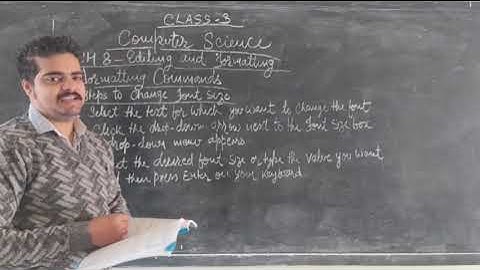 CLASS-3
Computer Science
H 8 - Editing and Formatting
Formatting Commands
Steps to Change Font Size
Select the text for which you want to change the font
Click the drop-down arrow next to the Font Size box
drop-down menu appears
the desired font size or type the value you want
then press Enter on your keyboard